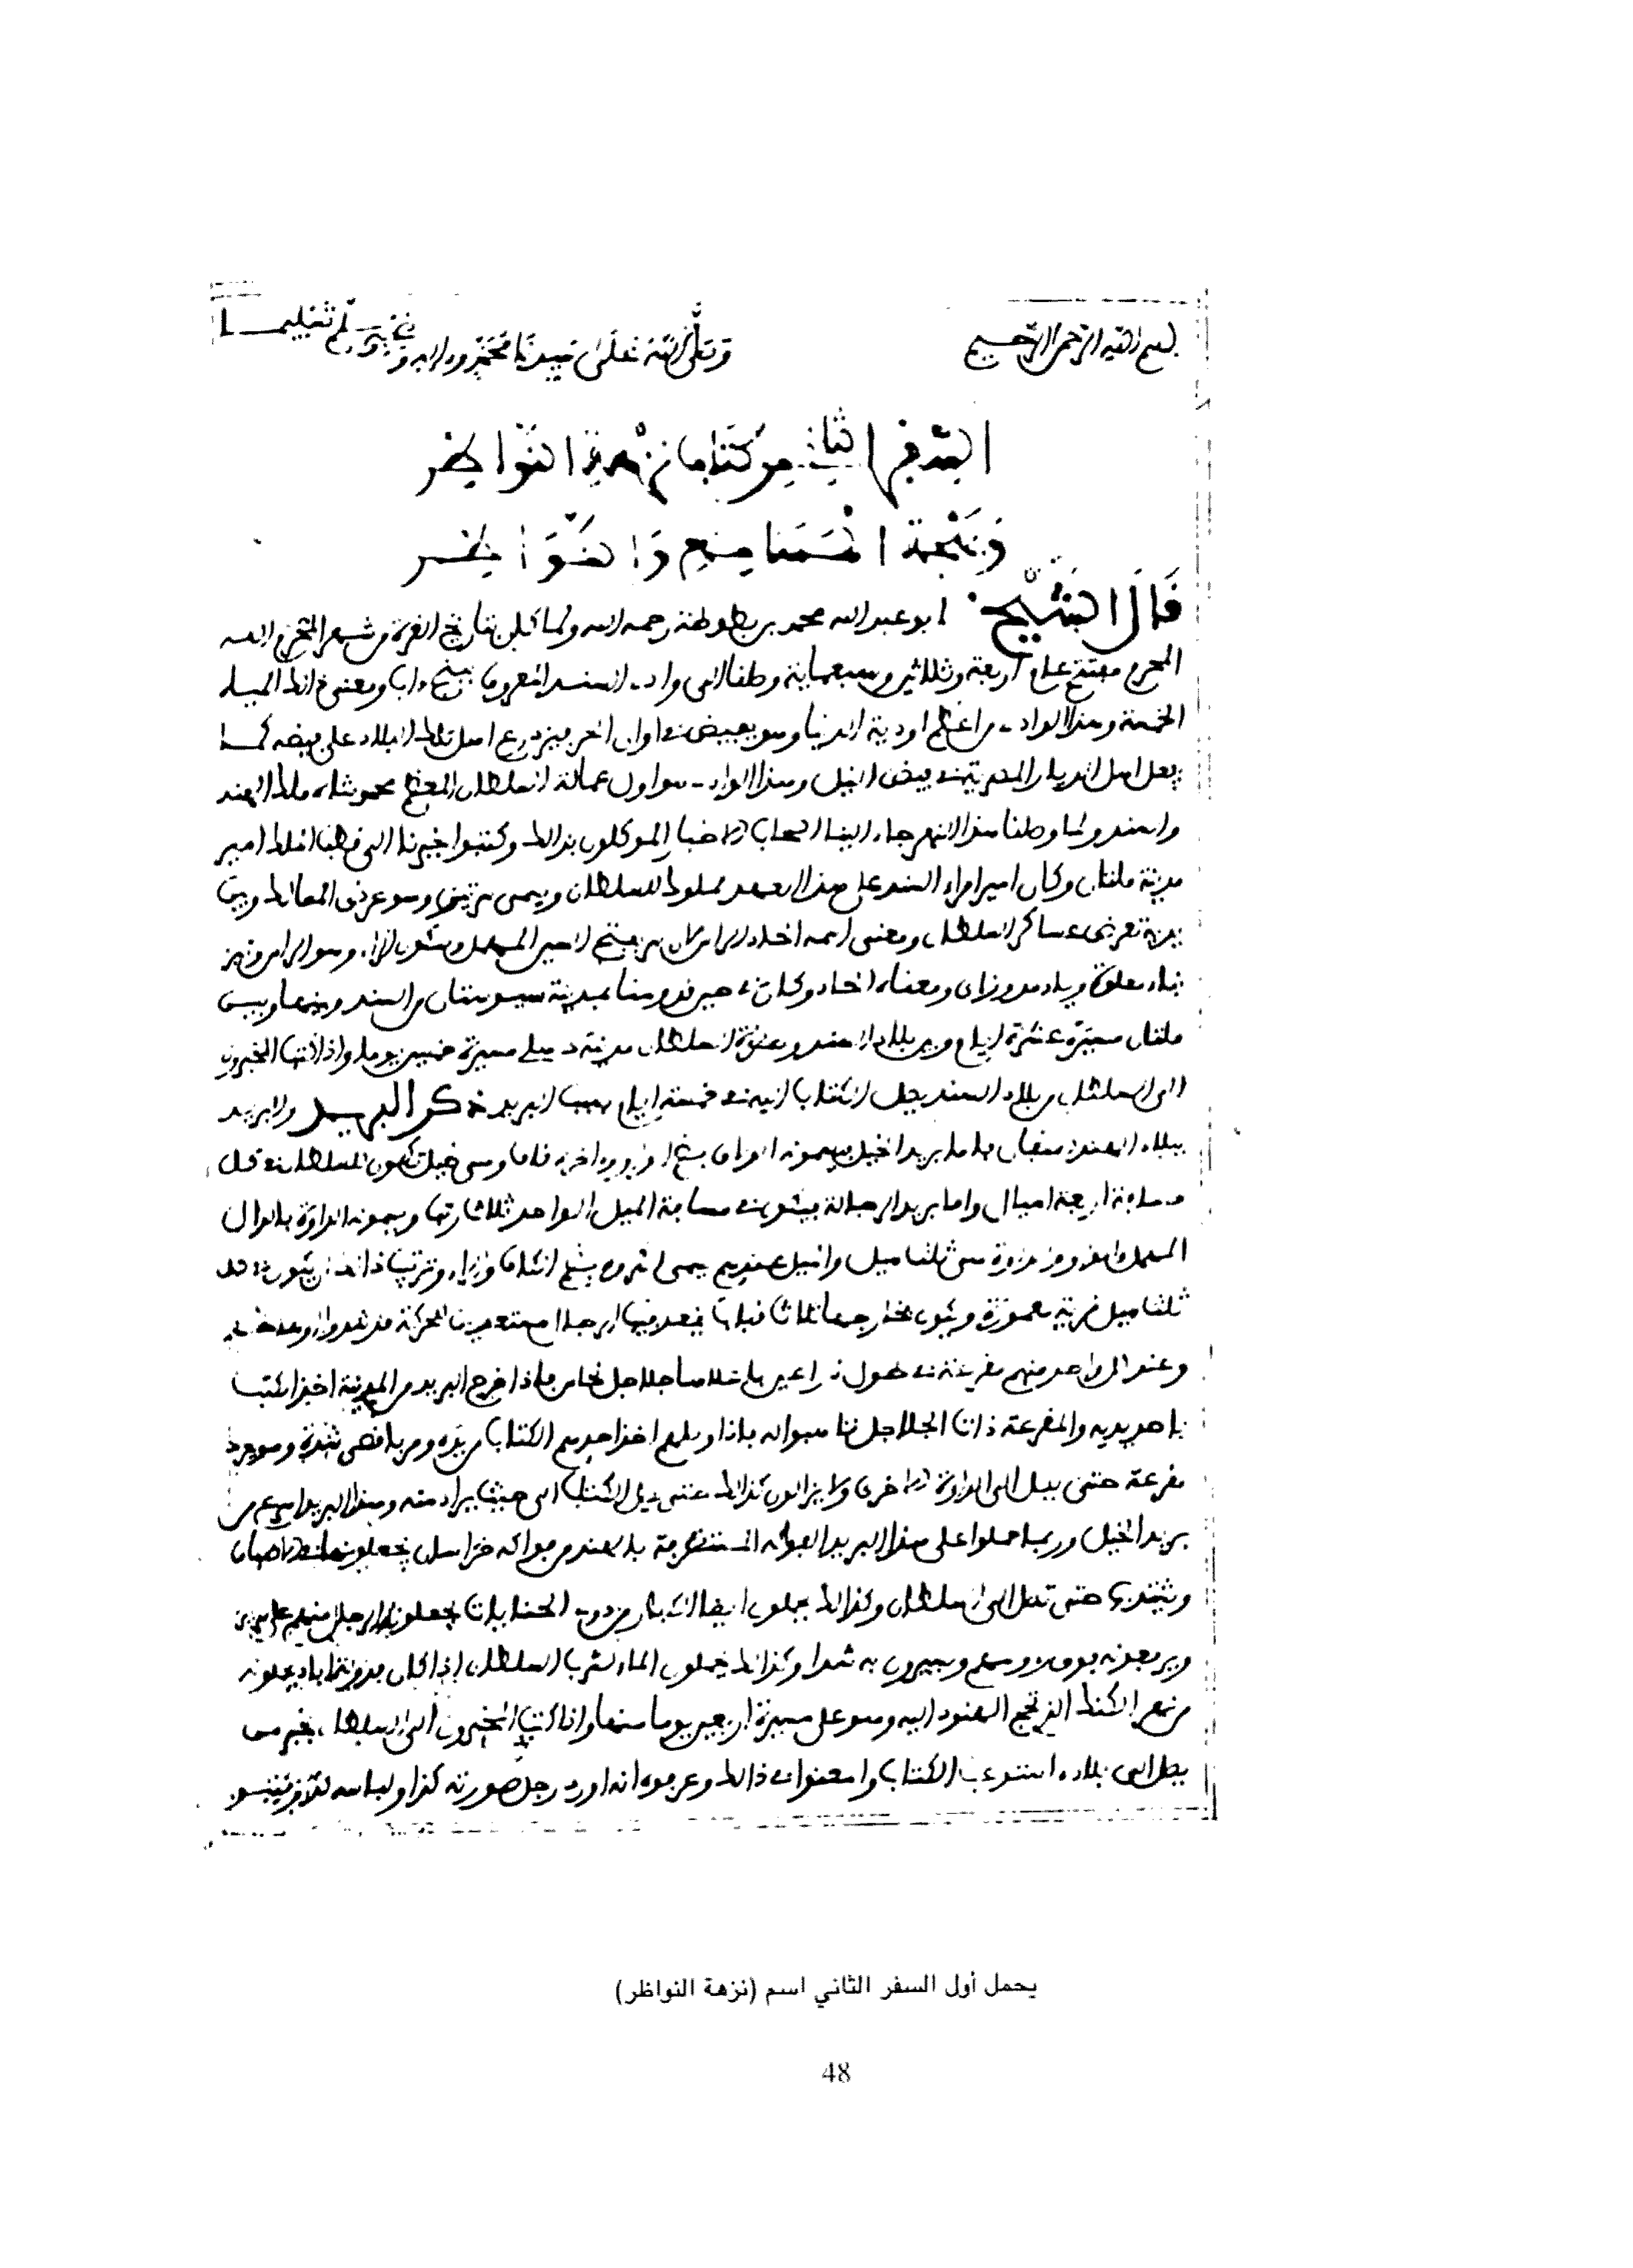 بسم الله الرحمن الرحيم وصلى الله على سيدنا محمد وءاله وصحبه وسلم تسليما
السفر الثاني من كتاب نزهة النواظر
وبهجة المسامع والنواظر
قال الشيخ ابو عبد الله محمد بن بطوطة رحمه الله ولما كان بتاريخ الغرة من شهر المحرم
المحرم مفتتح عام اربعة وثلاثين وسبعماية وصلنا الى واد السند المعروف ببنج ءاب ومعنى ذلك المياه
الخمسة وهذا الواد من اعظم اودية الدنيا وهو يفيض في اوان الحر فيزدرع اهل تلك البلاد على فيضه كما
يفعل اهل الديار المصرية في فيض النيل وهذا الواد هو اول عمالة السلطان المعظم محمد شاه ملك الهند
والسند ولما وصلنا هذا النهر جاء الينا اصحاب الاخبار الموكلون بذلك وكتبوا خبرنا الى قطب الملك امير
مدينة ملتان وكان امير امراء السند على هذا العهد مملوك للسلطان ويسمى سرتيز وهو عرض المماليك وبين
يديه تعرض عساكر السلطان ومعنى اسمه الحاد الراس لان سر بفتح السين المهمل وسكون الراء وهو الراس وتيز
بتاء معلوة وياء مد وزاي ومعناه الحاد وكان في حين قدومنا بمدينة سيوستان من السند وبينها وبين
ملتان مسيرة عشرة ايام وبين بلاد السند وحضرة السلطان مدينة دهلي مسيرة خمسين يوما واذا كتب المخبرون
الى السلطان من بلاد السند يصل الكتاب اليه في خمسة ايام بسبب البريد ذكر البريد والبريد
ببلاد الهند صنفان فاما بريد الخيل فيسمونه
مسافة اربعة اميال واما بريد الرجالة فيكون في مسافة الميل الواحد ثلاث رتب ويسمونه الداوة بالدال
المهمل والداوة هي ثلث ميل والميل عندهم يسمى الكروه بضم الكاف والراء وترتيب ذلك ان يكون في كل
ثلث ميل قرية معمورة ويكون بخارجها ثلاث قباب يقعد فيها الرجال مستعدين للحركة قد شدوا اوساطهم
وعند كل واحد منهم مقرعة في طول ذراعين باعلاها جلاجل نحاس فاذا خرج البريد من المدينة اخذ الكتب
باحد يديه والمقرعة ذات الجلاجل
مقرعة حتى يصل الى الداوة الاخرى ولا يزالون كذلك حتى يصل الكتاب الى حيث يراد منه وهذا البريد اسرع من
بريد الخيل وربما حملوا على هذا البريد الفواكه المستطرفة بالهند من فواكه خراسان يجعلونها في الاطباق
ويشتدون حتى تصل الى السلطان وكذلك يحملون ايضا الكبار من ذوي الجنايات يجعلون الرجل منهم على سرير
ويرفعونه فوق رءوسهم ويسيرون به شدا وكذلك يحملون الماء لشرب السلطان اذا كان بدولة اباد يحملونه
من نهر الكنك الذي تحج الهنود اليه وهو على مسيرة اربعين يوما منها واذا كتب المخبرون الى السلطان بخبر من
يصل الى بلاده استوعب الكتاب وامعنوا في ذلك وعرفوه انه ورد رجل صورته كذا ولباسه كذا
يحمل أول السفر الثاني اسم (نزهة النواظر)
48